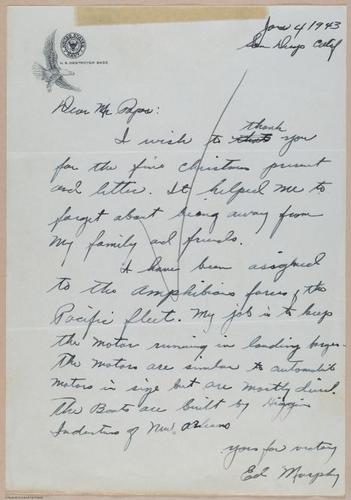 Jan 4 1943
San Diego Calif
U.S. DESTROYER BASE
Dear Mr. Papas:
I wish to thank you
for the fine Christmas present
and letter. It helped me to
forget about being away from
my family and friends.
I have been assigned
to the amphibious forces of the
Pacific fleet. My job is to keep
the motor running in landing barges.
The motors are similar to automobile
motors in size but are mostly diesel.
The Boats are built by Higgins
Industries of New Orleans
yours for victory
Ed Murphy